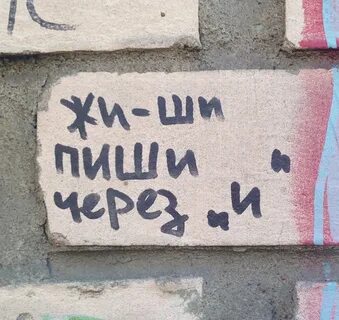 жи-ши
пиши
через „и"